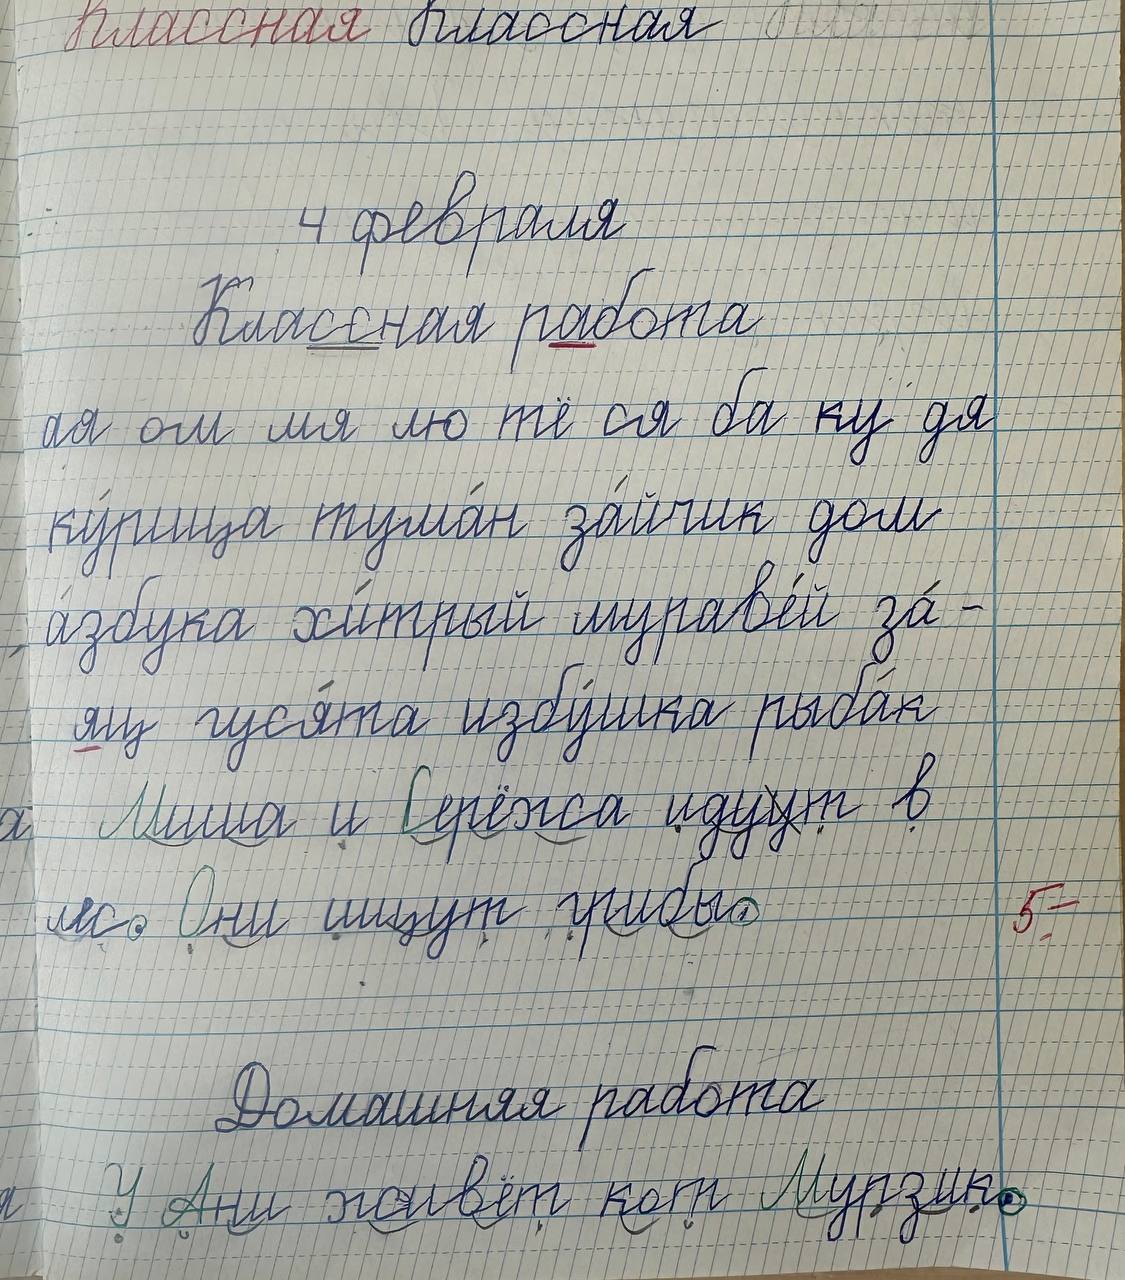 Классная Классная
4 февраля
Классная работа
ая ом мя лю тё ся ба ку дя
ку́рица тума́н за́йчик дом
а́збука хи́трый мураве́й за́-
яц гуся́та избу́шка рыба́к
Миша и Серёжа идуут в
лес. Они ищут грибы.
5-
Домашняя работа
У Ани живёт кот Мурзик.